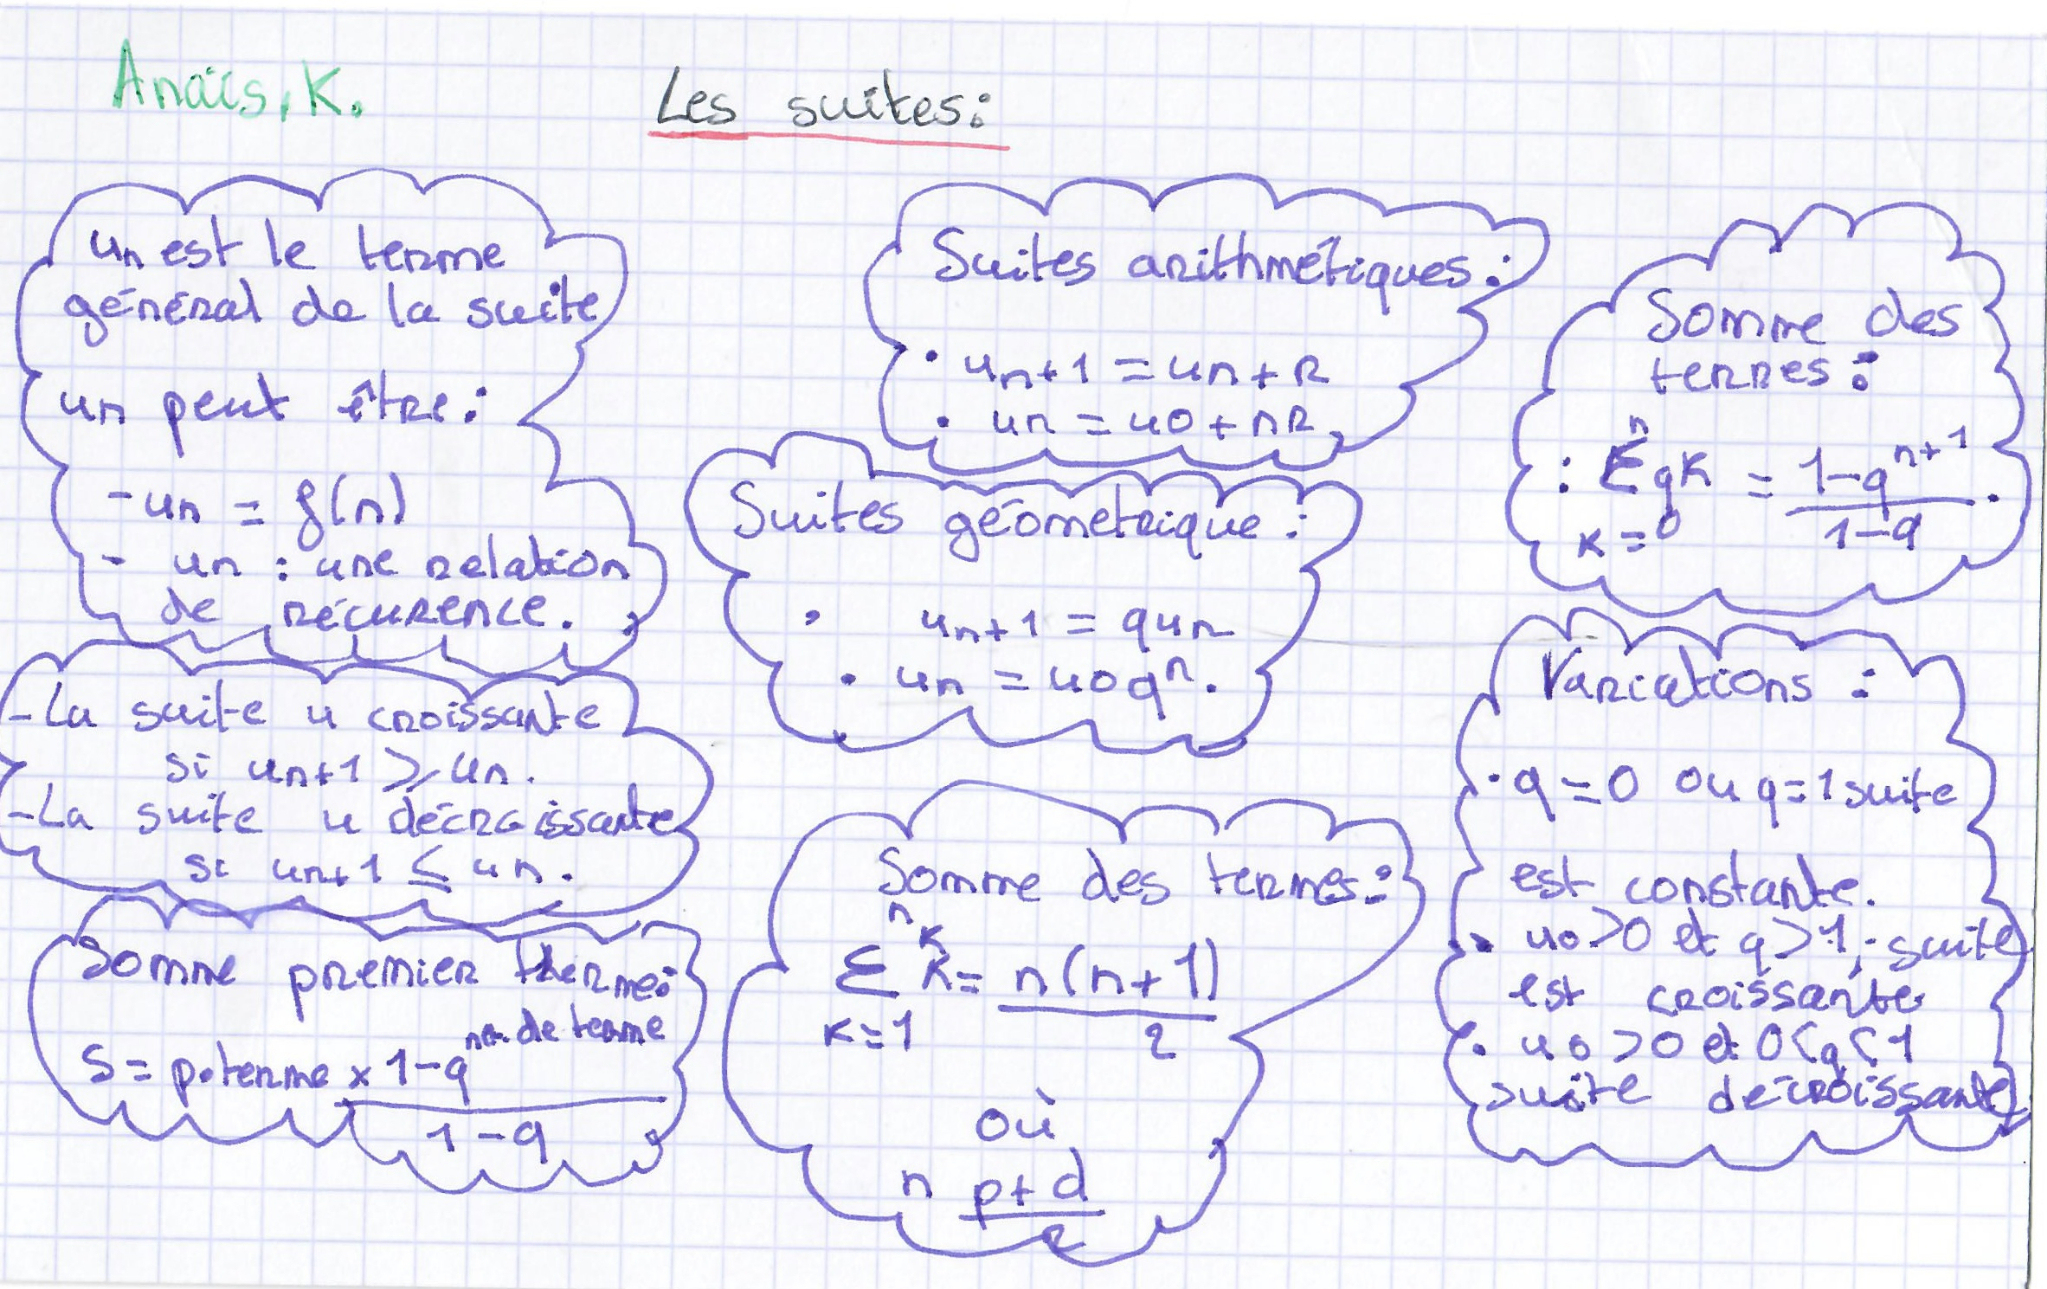 Anaïs.K.
Les suites:
un est le terme
général de la suite
un peut être:
- un = f(n)
- un : une relation
de récurence.
- La suite u croissante
si un+1 ⩾ un.
- La suite u décroissante
si un+1 ≤ un.
Somme premier therme:
S = p.terme × 1-q^nb de terme
1-q
Suites arithmétiques:
• un+1 = un + R
• un = u0 + nR
Suites géométrique:
• un+1 = qun
• un = u0q^n.
Somme des termes:
n
Σ k = n(n+1)
k=1 2
où
n p+d
2
Somme des
termes:
n
: Σ qK = 1-q^n+1.
K=0 1-q
Variations :
• q=0 ou q=1 suite
est constante.
• u0>0 et q>1, suite
est croissante
• u0>0 et 0<q<1
suite décroissante